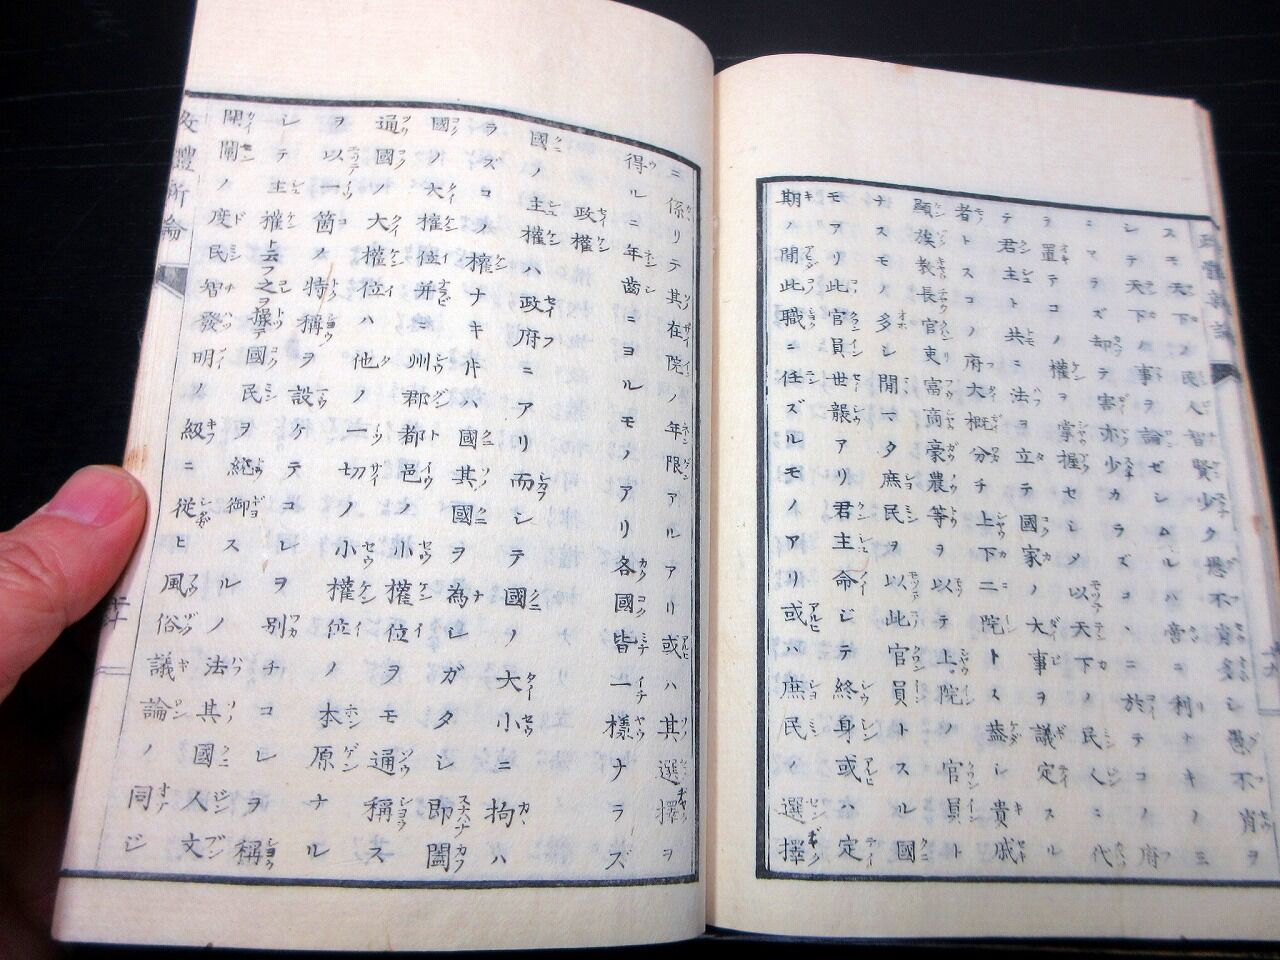 スモ天下ノ民人智賢少ク愚不肖多シ愚不肖ヲ
シテ天下ノ事ヲ論ゼシムルハ啻ニ利ナキノミ
ニマラズ却テ害亦少カラズコヽニ於テコノ府
ヲ置テコノ權ヲ掌握セシメ以テ天下ノ民人ニ代
テ君主ト共ニ法ヲ立テ國家ノ大事ヲ議定スル
者トスコノ府大概分チ上下二院トス蓋シ貴戚
顯族教長官吏富商豪農等ヲ以テ上院ノ官員ト
ナスモノ多シ間マタ庶民ヲ以此官員トスル國
モアリ此官員世襲アリ君主命ジテ終身或ハ定
期ノ間此職ニ任ズルモノアリ或ハ庶民ノ選擇
ニ係リテ其在院ノ年限アルアリ或ハ其選擇ヲ
得ルニ年齒ニヨルモノアリ各國皆一樣ナラズ
政權
國ノ主權ハ政府ニアリ而シテ國ノ大小ニ拘ハ
ラズコノ權ナキ片ハ國其國ヲ為シガタシ即闔
國ノ大權位并ニ州郡都邑ノ小權位ヲモ通稱ス
通國ノ大權位ハ他ノ一切ノ小權位ノ本原ナル
ヲ以一箇ノ特稱ヲ設ケテコレヲ別チコレヲ稱
シテ主權ト云フ之ヲ操テ國民ヲ統御スルノ法其國人文
開闡ノ度民智發明ノ級ニ從ヒ風俗議論ノ同ジ